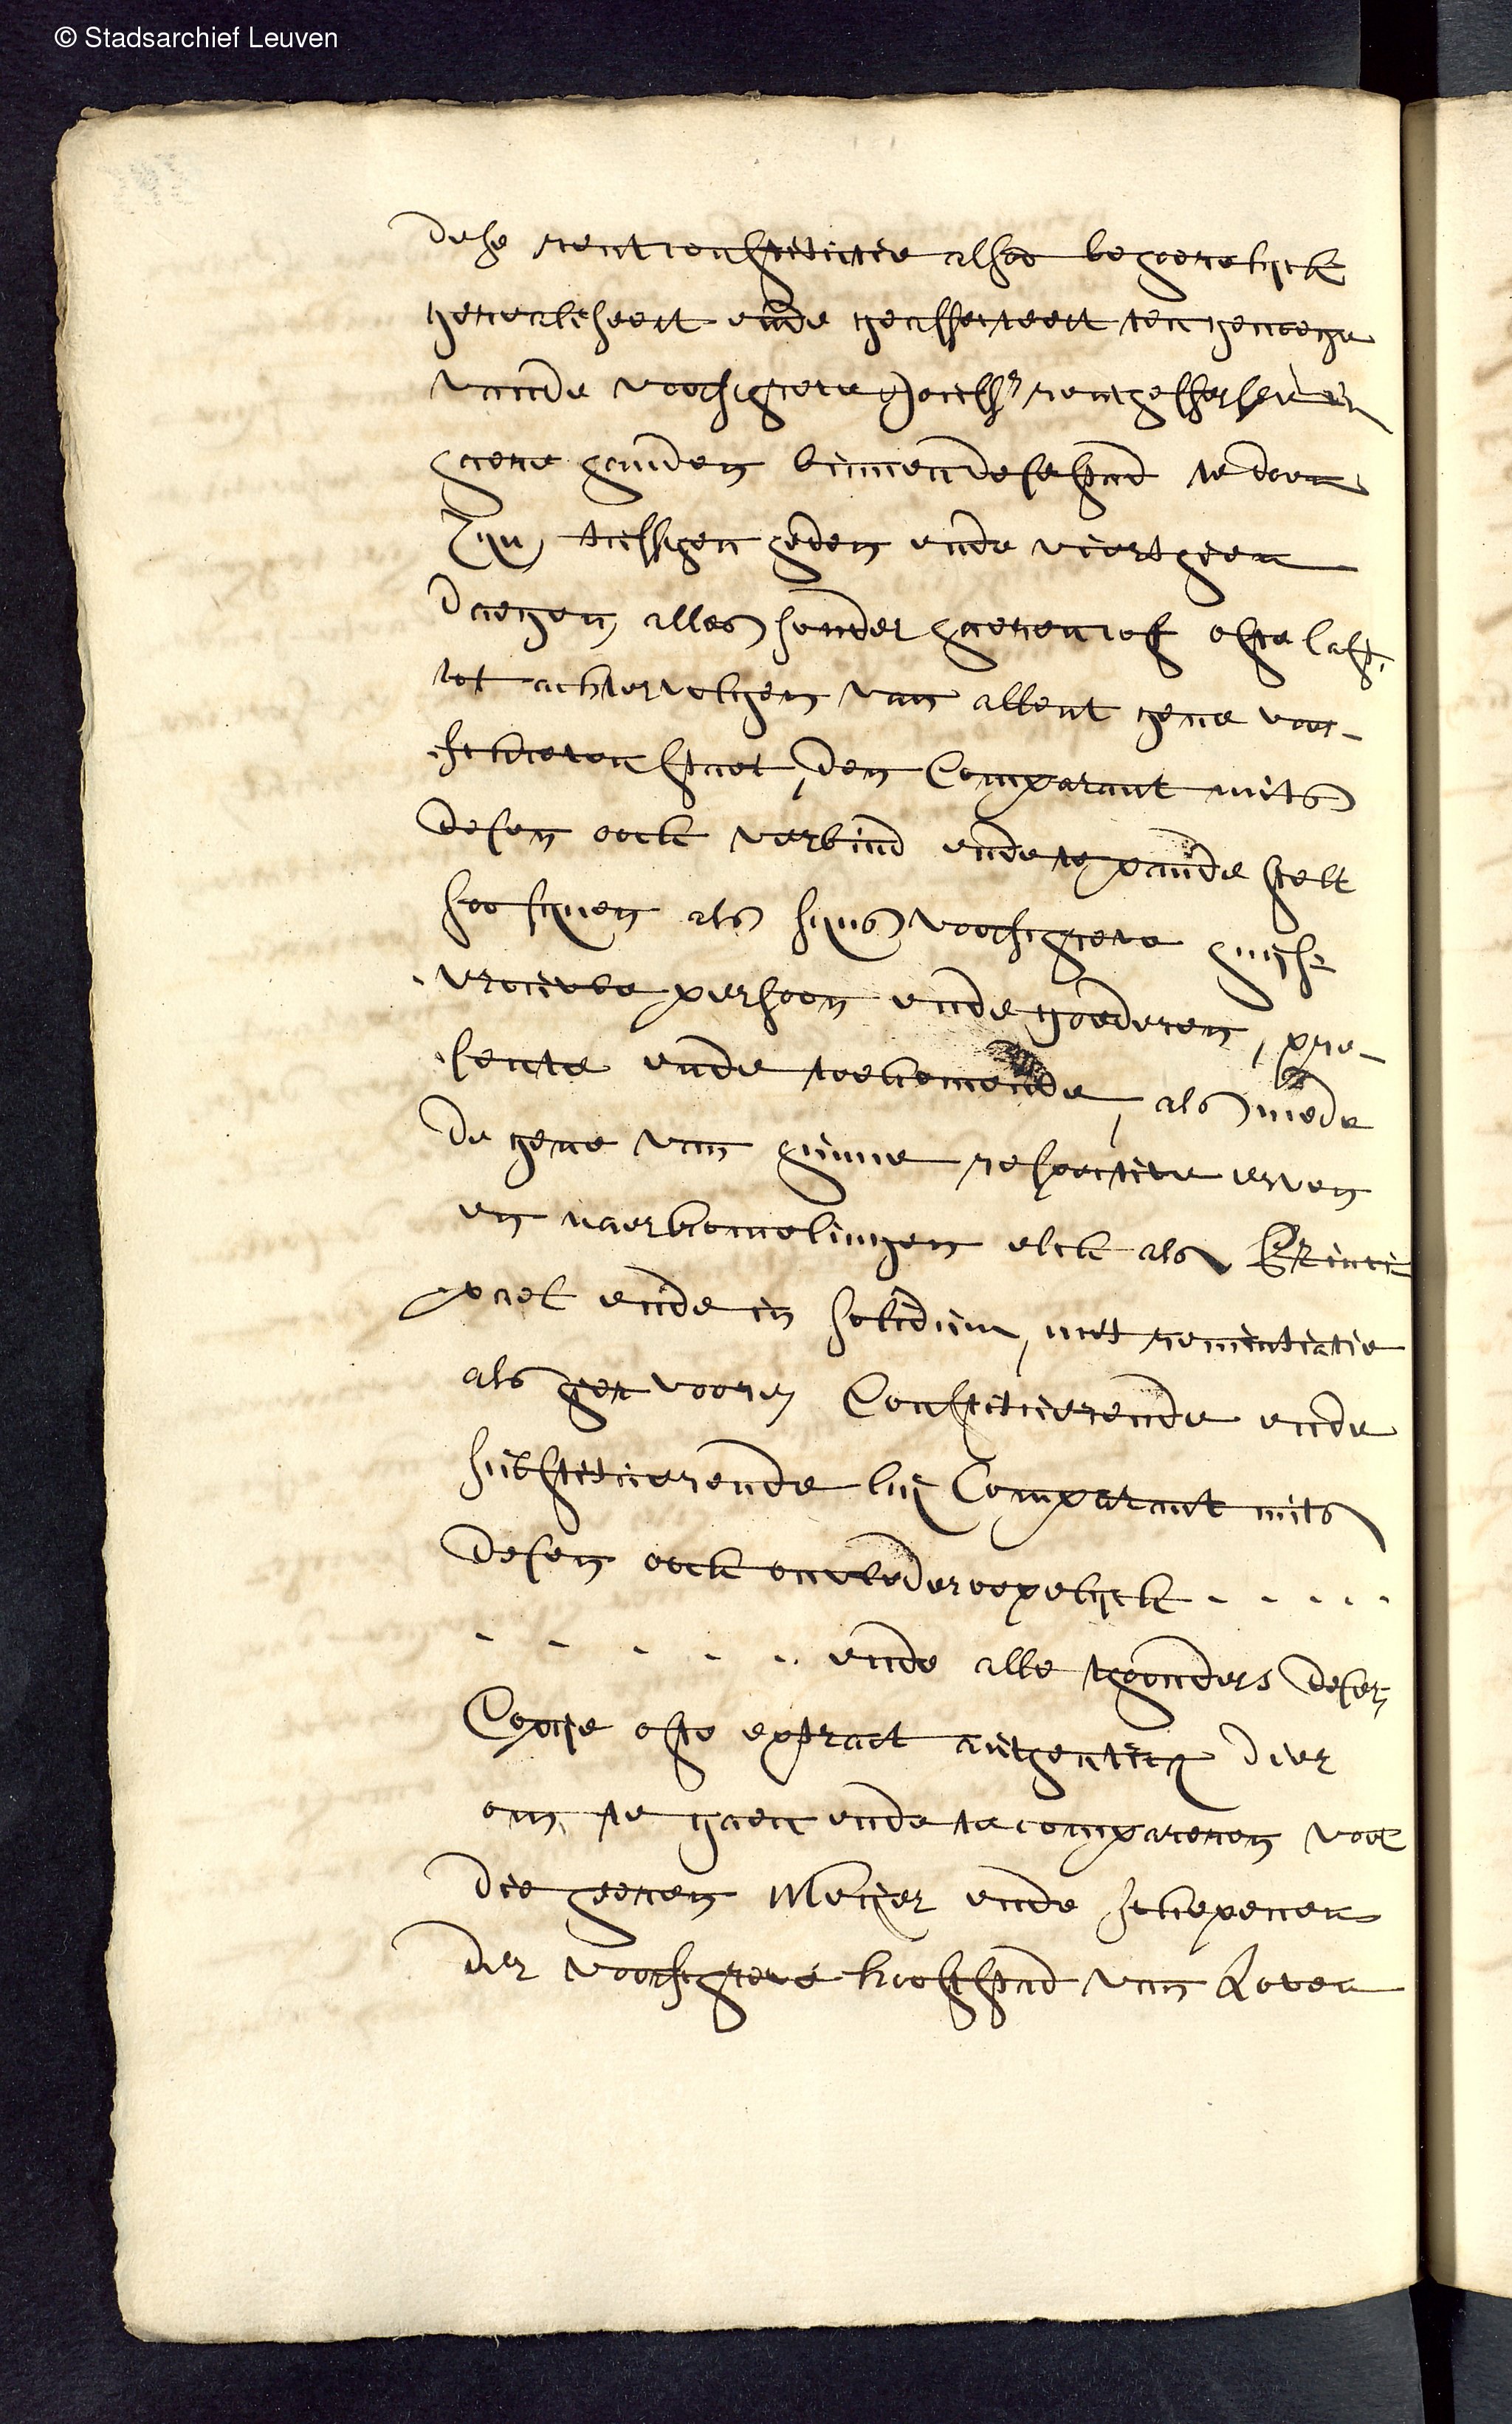 © Stadsarchief Leuven
dese rentconstitutie alsoo behoorelyck
gerealiseert ende geaffecteert ten genoege
vande voorschreve Jouffe rentgeltersse in
haere handen binnen dese stad te doen
tusschen heden ende vierthien
daegen, alles sonder haeren cost ofte last,
tot achtervolgen van allent gene voor-
schreven staet, den Comparant mits
desen oock verbind ende te pande stelt
soo synen als syns voorschreve huys-
vrouwe persoon ende goederen, pre-
sente ende toekomende, als mede
de gene van hunne respective erven
en naerkomelingen elck als Princi
pael ende in solidum, met renuntiatie
als hier vooren Constituerende ende
substituerende by Comparant mits
desen oock onwederroepelyck - - - - -
- - - - - ende alle thoonders deser
Copye ofte extract authenticq dier
om te gaen ende te compareren voor
die heeren Meyer ende schepenen
der voorschreve hooftstad van Loven